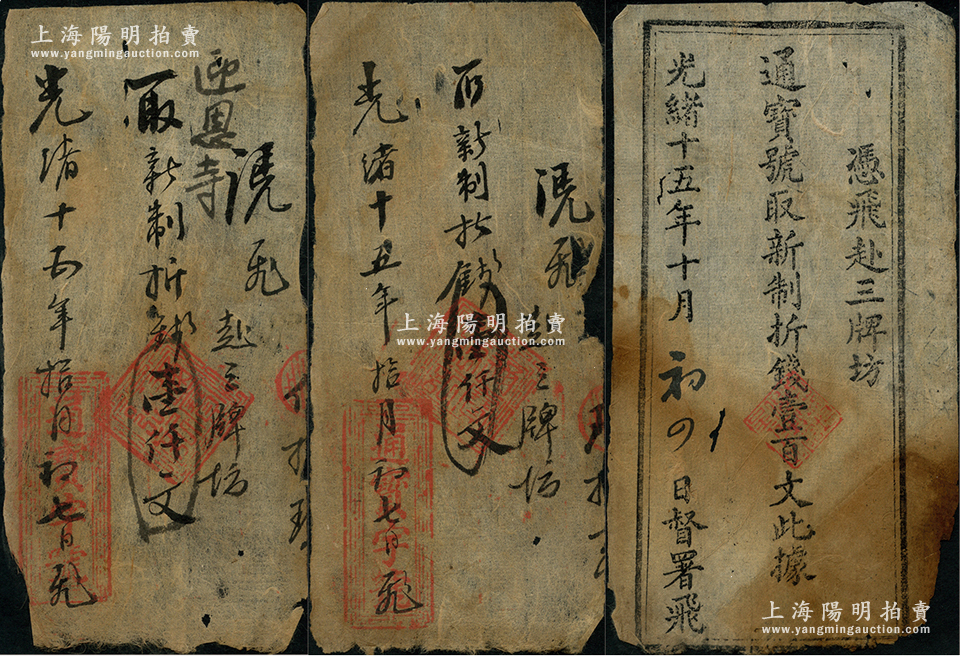 上海陽明拍賣
www.yangmingauction.com
迎恩寺
憑飛赴三牌坊
取新制折錢壹仟文
光緒十五年拾月初七日飛
憑飛赴三牌坊
取新制折錢壹仟文
光緒十五年拾月初七日飛
上海陽明拍賣
www.yangmingauction.com
憑飛赴三牌坊
通寶號取新制折錢壹百文此據
光緒十五年十月初四日督署飛
上海陽明拍賣
www.yangmingauction.com